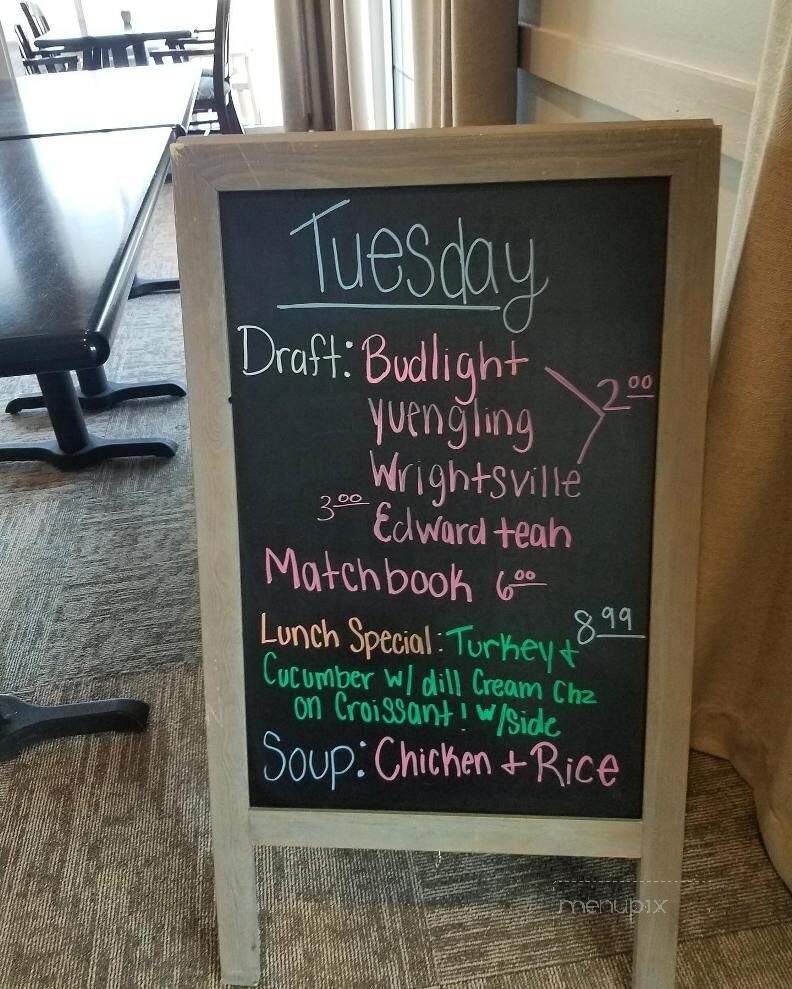 Tuesday
Draft: Budlight
Yuengling 2.00
Wrightsville
3.00 Edward teah
Matchbook 6.00
Lunch Special: Turkey + 8.99
Cucumber w/ dill Cream Chz
on Croissant! w/side
Soup: Chicken + Rice
menupix